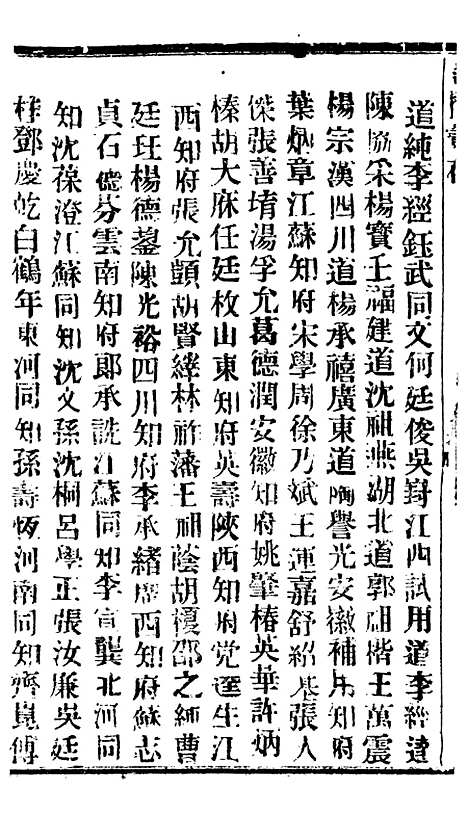 道純李經鈺武同文何廷俊吳尌江西試用道李經達
陳協采楊寶壬福建道沈祖燕湖北道郭祖楷王萬震
楊宗漢四川道楊承禧廣東道陶譽光安徽補用知府
葉炳章江蘇知府宋學周徐乃斌王運嘉舒紹基張人
傑張善堉湯孚允葛德潤安徽知府姚肇椿英華許炳
榛胡大庥任廷枚山東知府英壽陝西知府党 生江
西知府張允顗胡賢繹林祚藩王祖蔭胡榎邵之 曹
廷玨楊德鋆陳光裕四川知府李承緒廣西知府蘇志
貞石德芬雲南知府郎承詵江蘇同知李宣龔北河同
知沈葆澄江蘇同知沈文孫沈桐呂學正張汝廉吳廷
桂鄧慶乾白鶴年東河同知孫壽恆河南同知齊嵐傅